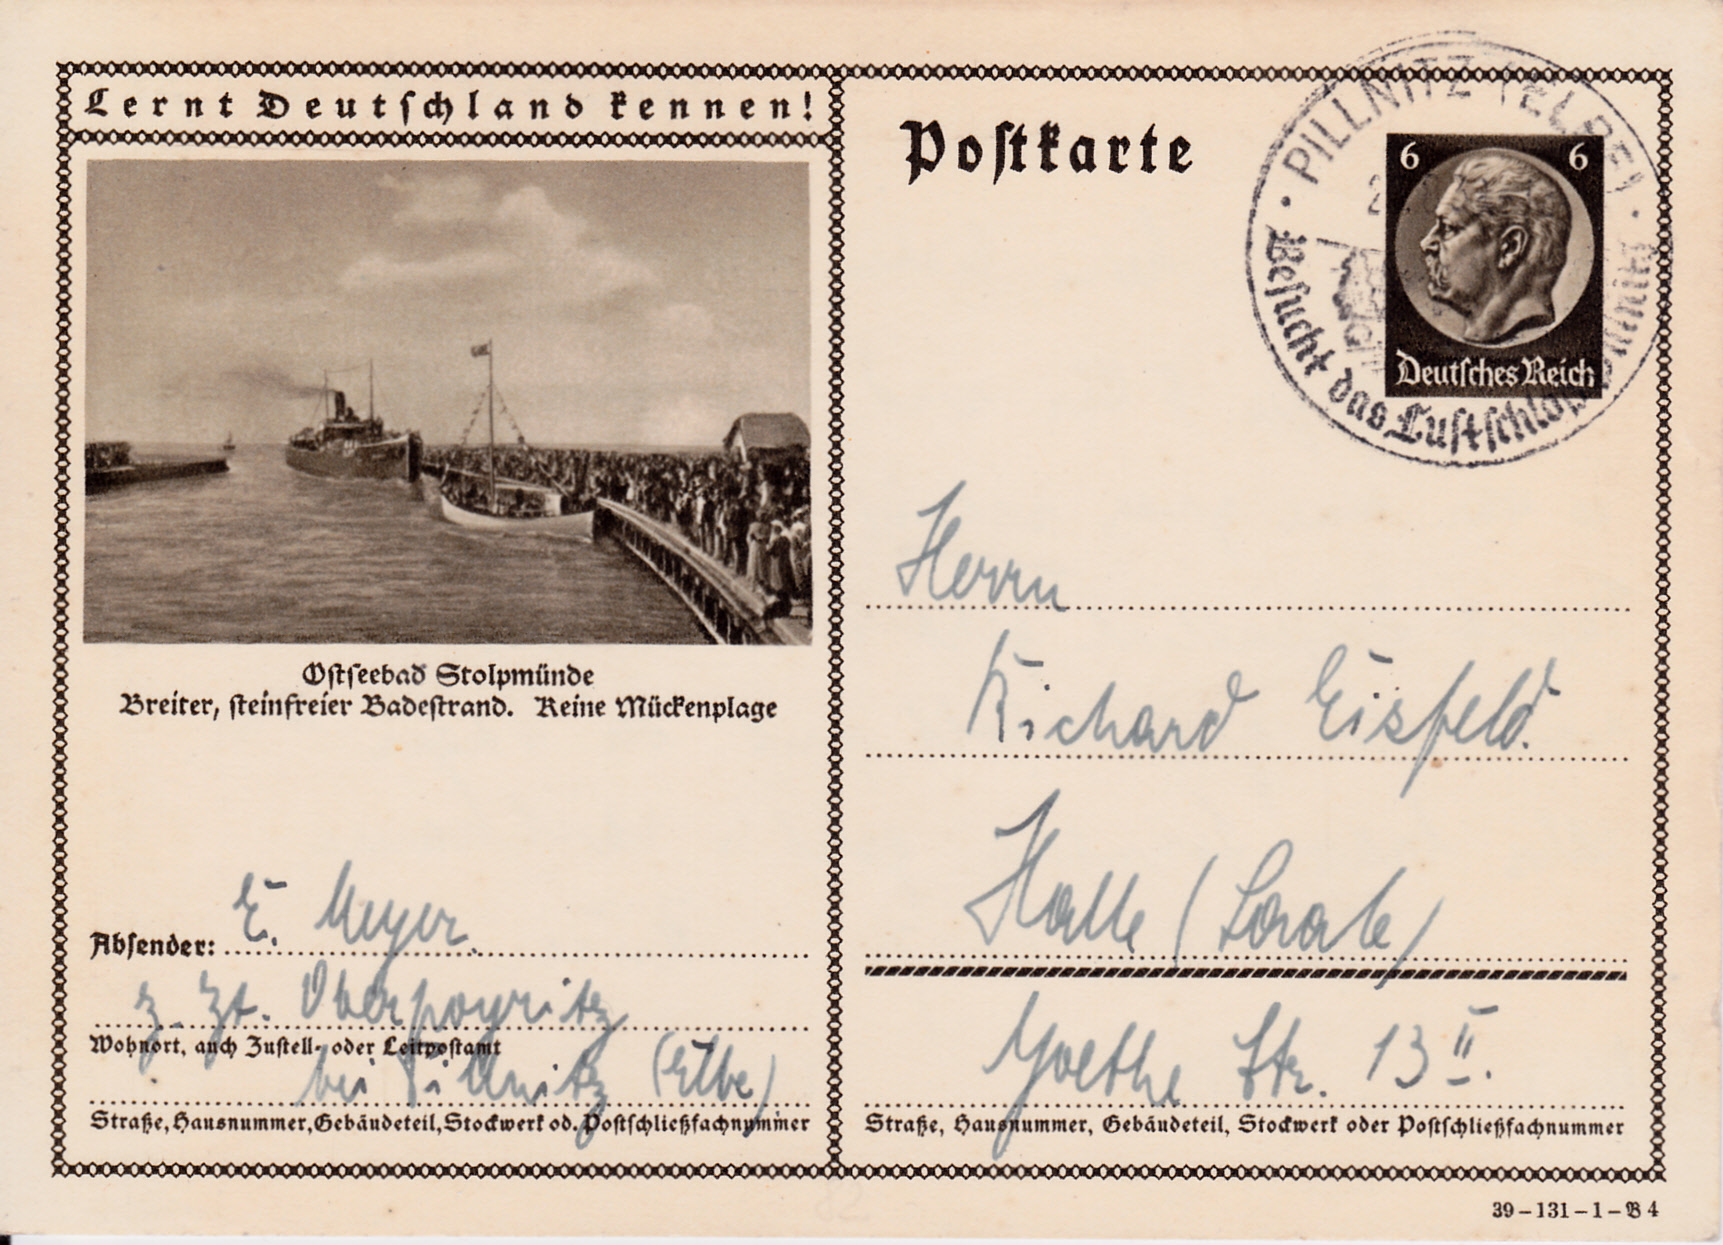 Lernt Deutschland kennen!
Ostseebad Stolpmünde
Breiter, steinfreier Badestrand. Keine Mückenplage
Absender: E. Meyer.
z. Zt. Oberpoyritz
Wohnort, auch Zustell- oder Leitpostamt
bei Pillnitz (Elbe)
Straße, Hausnummer, Gebäudeteil, Stockwerk od. Postschließfachnummer
Postkarte
PILLNITZ (ELBE)
Besucht das Lustschloß
6 6
Deutsches Reich
Herrn
Richard Eisfeld.
Halle (Saale)
Goethe Str. 13 II.
Straße, Hausnummer, Gebäudeteil, Stockwerk oder Postschließfachnummer
39-131-1-B 4